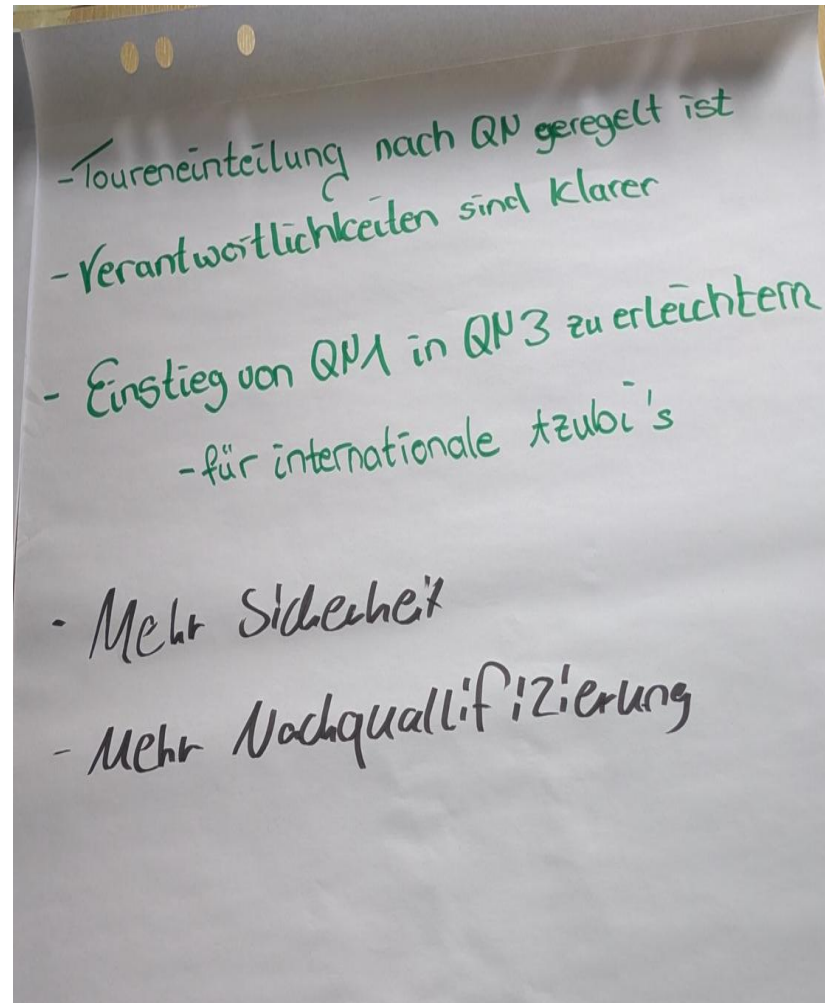 - Toureneinteilung nach QN geregelt ist
- Verantwortlichkeiten sind klarer
- Einstieg von QN1 in QN3 zu erleichtern
- für internationale Azubi's
- Mehr Sicherheit
- Mehr Nachquallifizierung